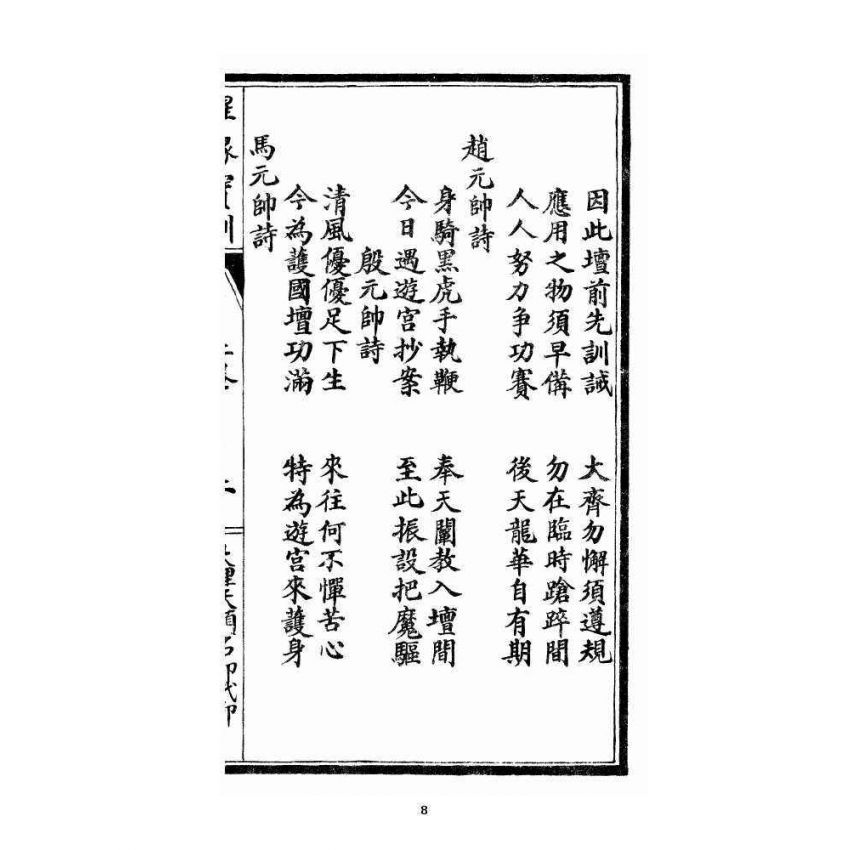 因此壇前先訓誡　大齊勿懈須遵規
應用之物須早備　勿在臨時蹌踤間
人人努力爭功賽　後天龍華自有期
趙元帥詩
身騎黑虎手執鞭　奉天闡教入壇間
今日遇遊宮抄案　至此振設把魔驅
殷元帥詩
清風優優足下生　來往何不憚苦心
今為護國壇功滿　特為遊宮來護身
馬元帥詩
8